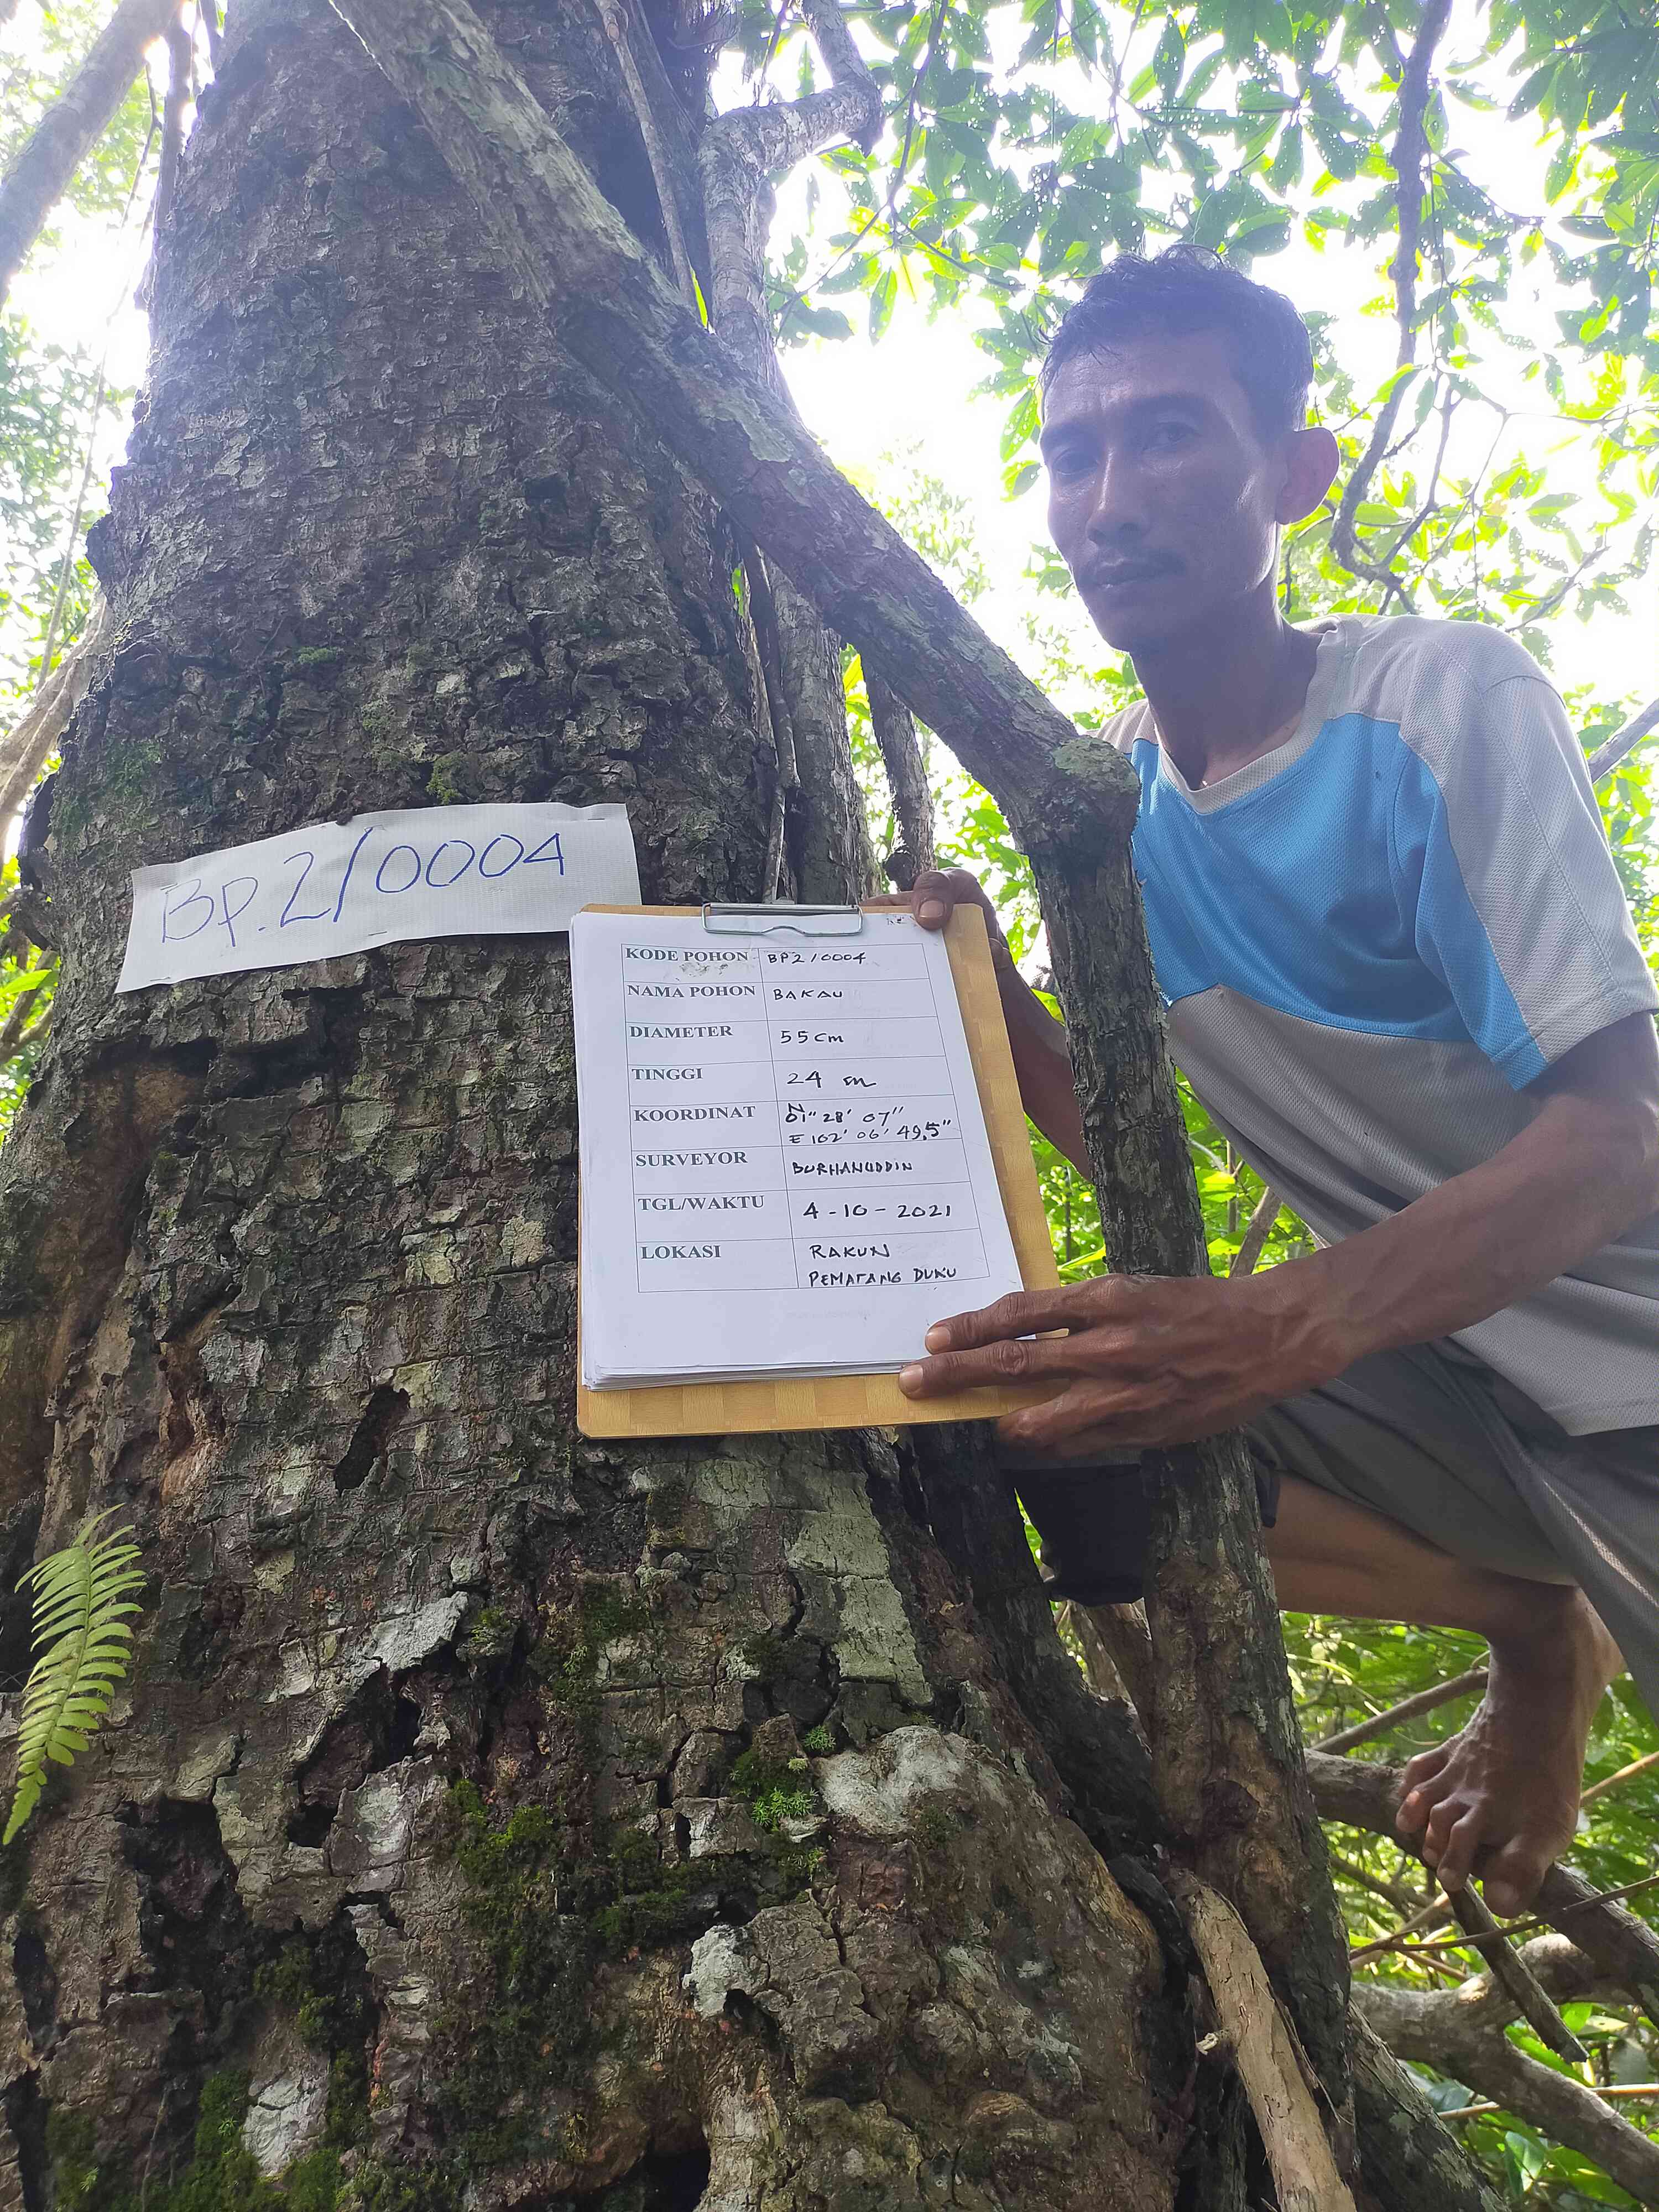 BP.2/0004
KODE POHON BP2/0004
NAMA POHON BAKAU
DIAMETER 55cm
TINGGI 24 m
KOORDINAT N 01" 28' 07"
E 102' 06' 49,5"
SURVEYOR BURHANUDDIN
TGL/WAKTU 4-10-2021
LOKASI RAKUN
PEMATANG DUKU